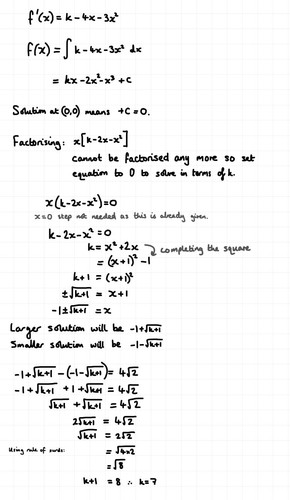 f'(x) = k - 4x - 3x²
f(x) = ∫ k - 4x - 3x² dx
= kx - 2x² - x³ + c
Solution at (0,0) means +C = 0.
Factorising: x[k-2x-x²]
cannot be factorised any more so set
equation to 0 to solve in terms of k.
x(k-2x-x²)=0
x=0 step not needed as this is already given.
k-2x-x² = 0
k = x²+2x
completing the square
= (x+1)² -1
k+1 = (x+1)²
±√k+1 = x+1
-1±√k+1 = x
Larger solution will be -1+√k+1
Smaller solution will be -1-√k+1
-1+√k+1 -(-1-√k+1) = 4√2
-1+√k+1 +1+√k+1 = 4√2
√k+1 + √k+1 = 4√2
2√k+1 = 4√2
√k+1 = 2√2
Using rule of surds: = √4×2
= √8
k+1 = 8 ∴ k=7